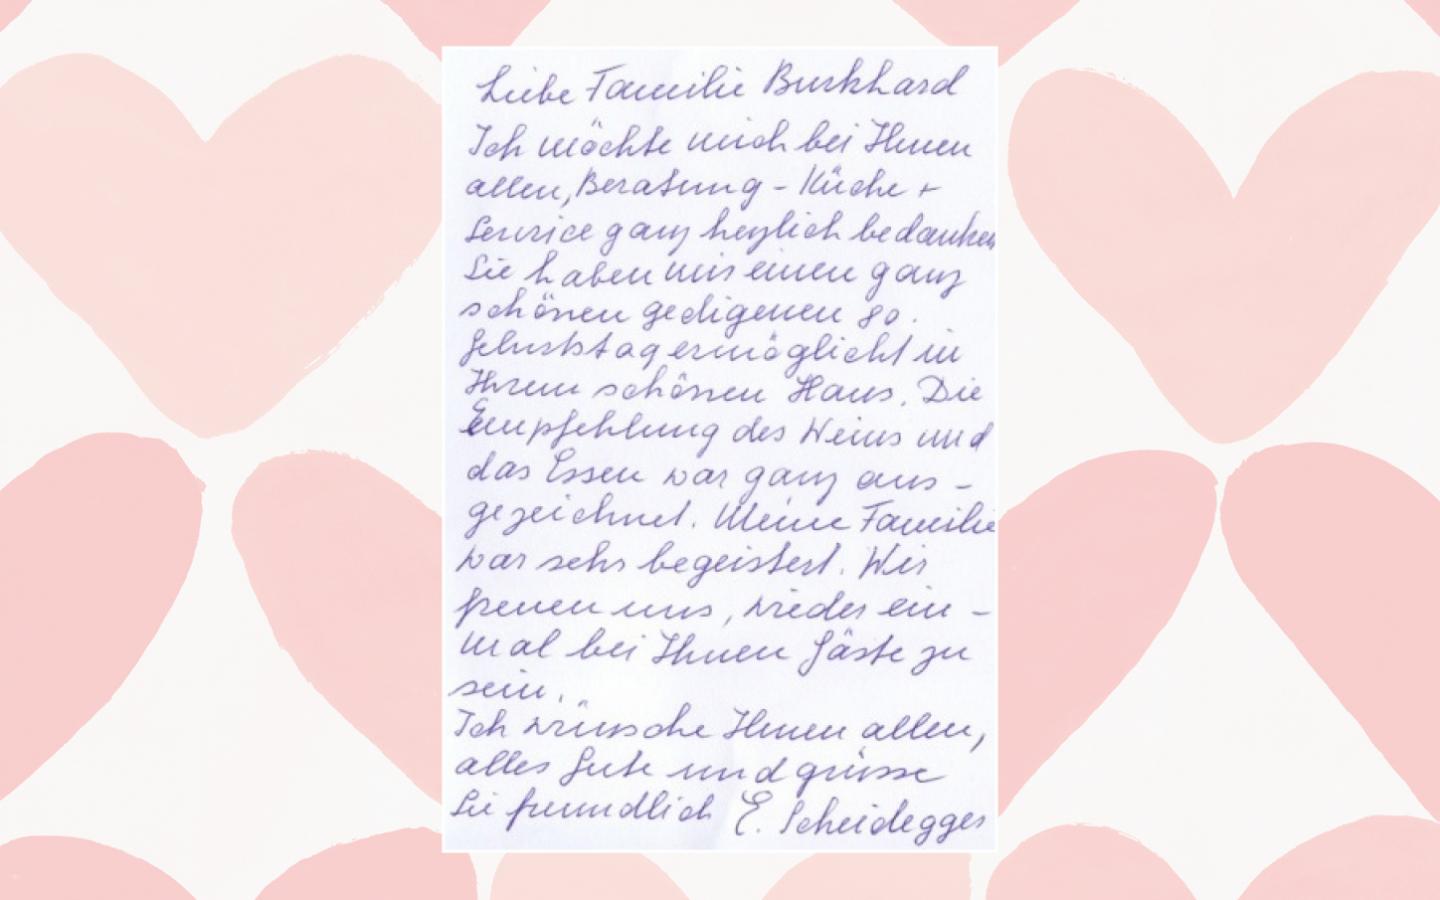 Liebe Familie Burkhard
Ich möchte mich bei Ihnen
allen, Beratung - Küche +
Service ganz herzlich bedanken
Sie haben mir einen ganz
schönen gedigenen 80.
Geburtstag ermöglicht in
Ihrem schönen Haus. Die
Empfehlung des Weins und
das Essen war ganz aus-
gezeichnet. Meine Familie
war sehr begeistert. Wir
freuen uns, wieder ein-
mal bei Ihnen Gäste zu
sein.
Ich wünsche Ihnen allen,
alles Gute und grüsse
Sie freundlich E. Scheidegger